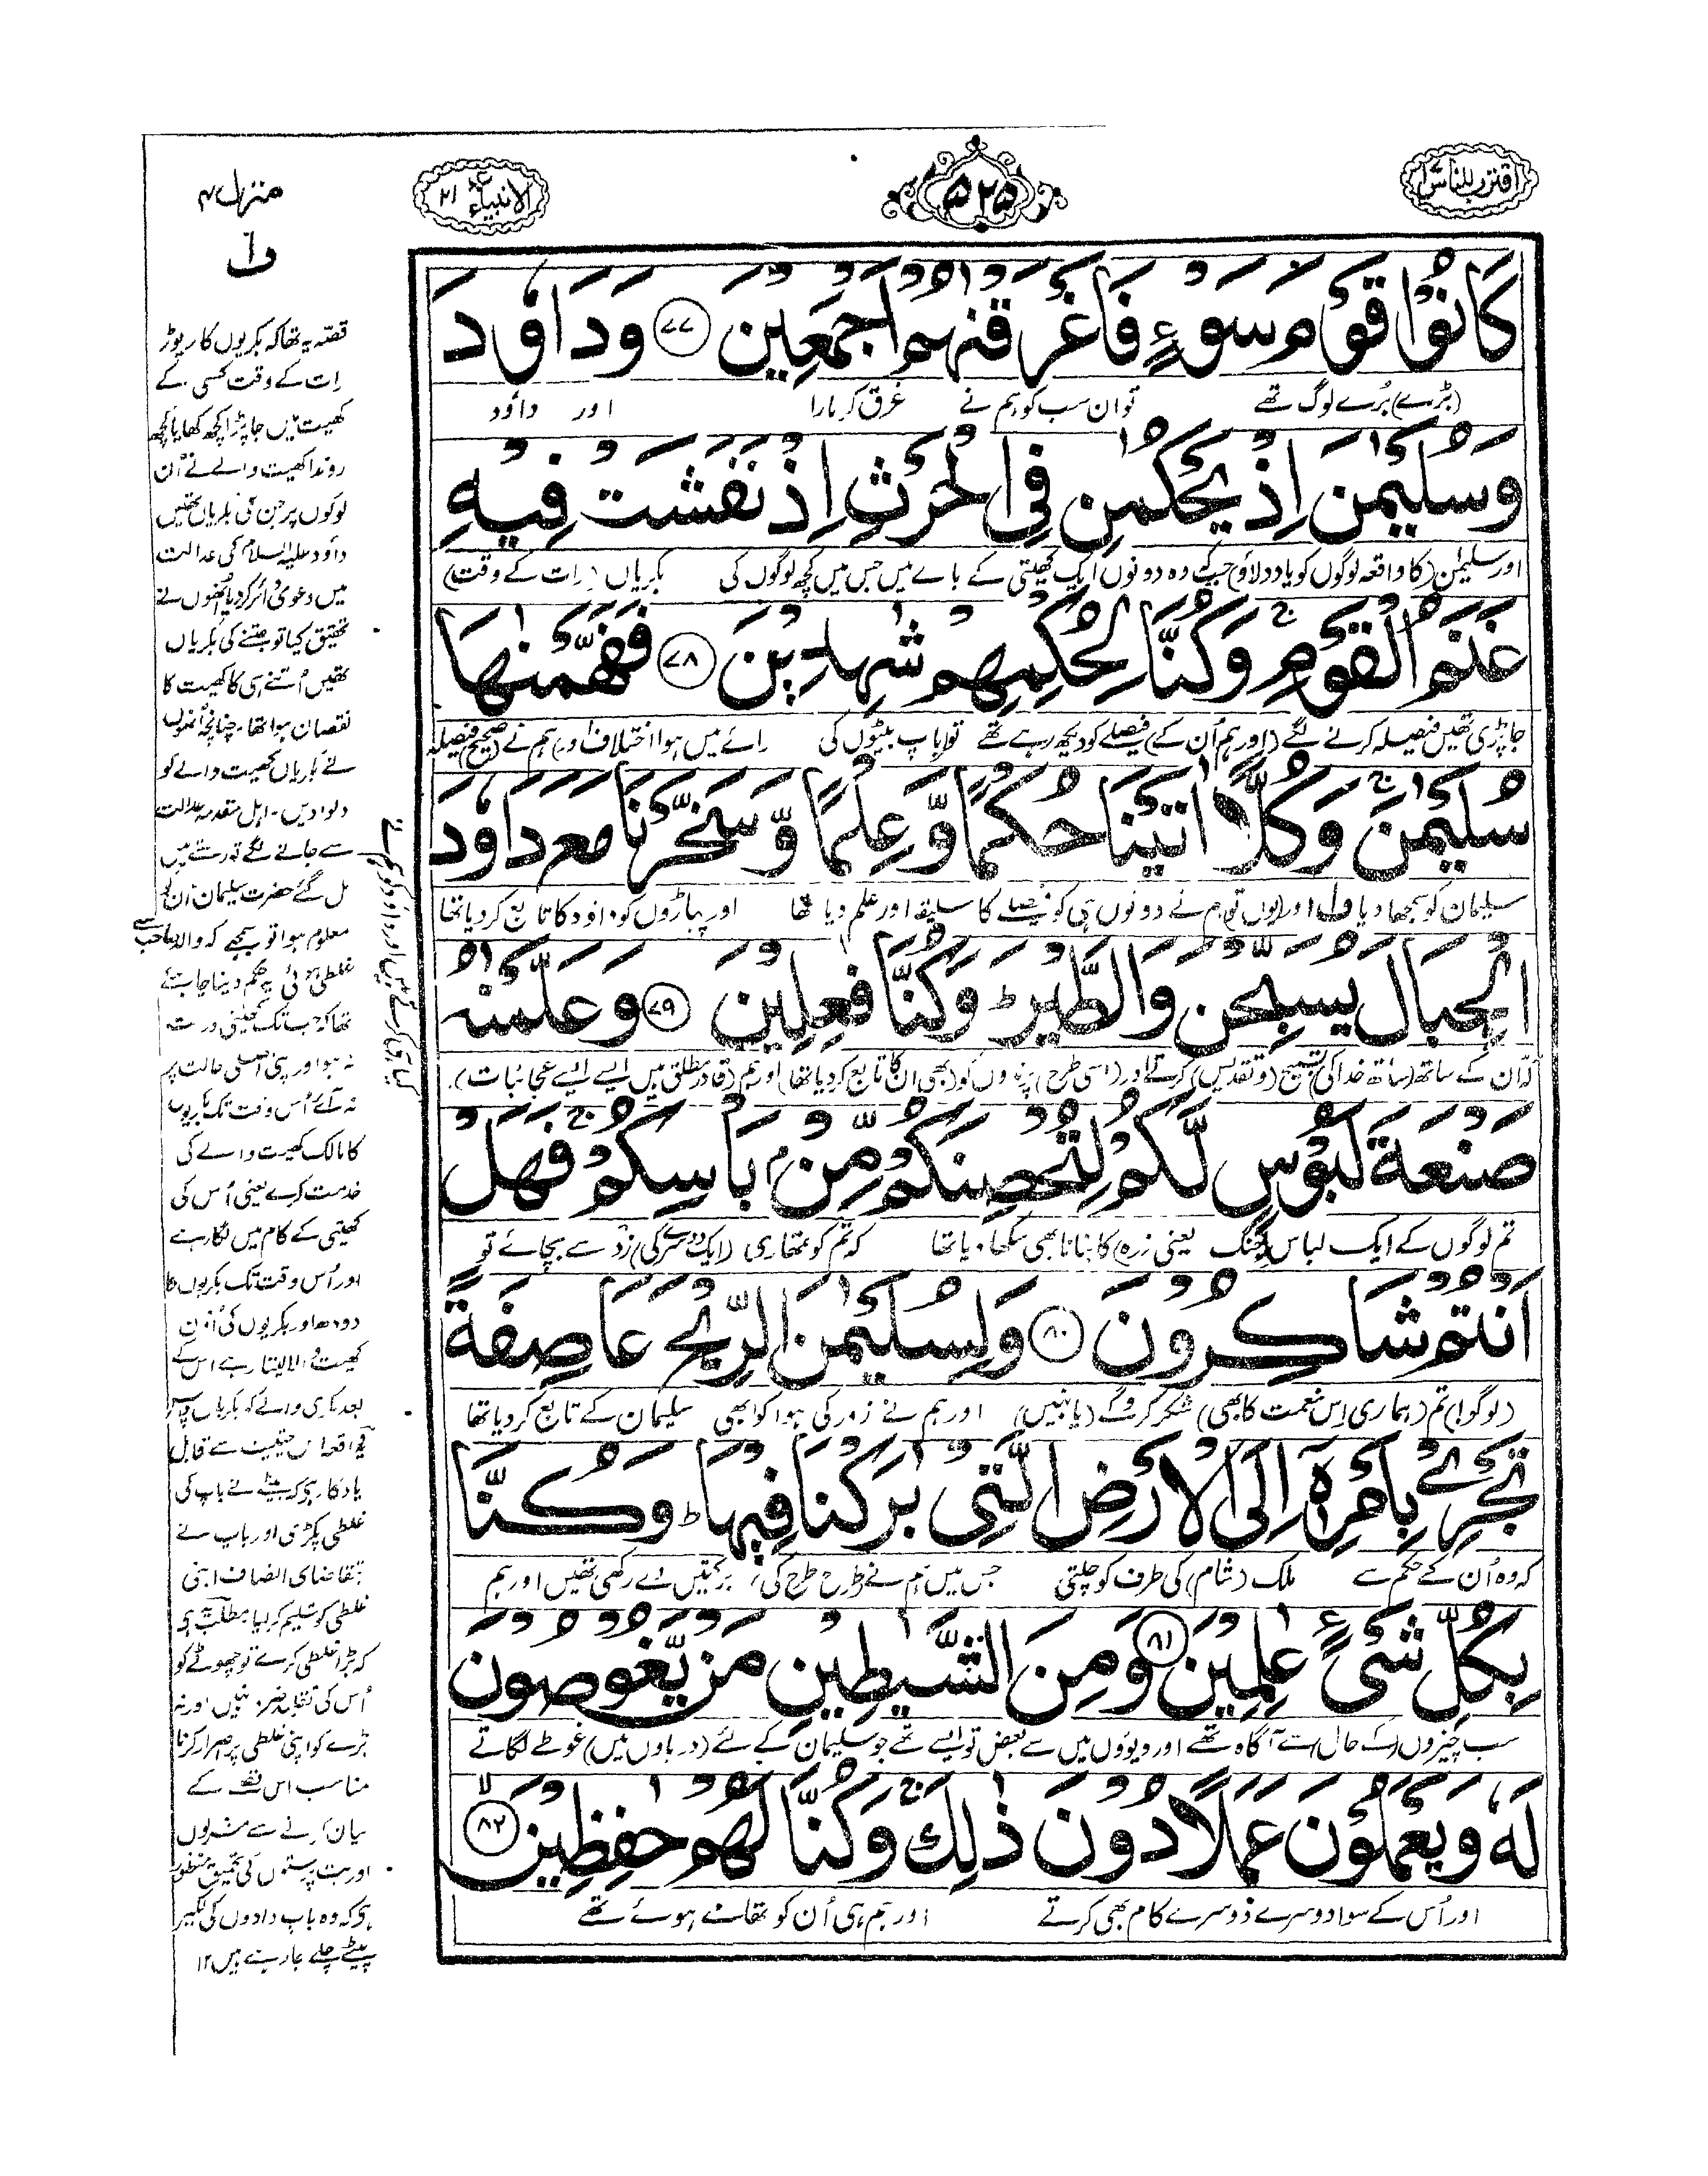 اقترب للناس
۵۲۵
الانبیاء ۲۱
منزل ۴
كَانُوْا قَوْمَ سَوْءٍ فَاَغْرَقْنٰهُمْ اَجْمَعِيْنَ ﴿۷۷﴾ وَدَاوٗدَ
(بڑے) بُرے لوگ تھے توان سب کو ہم نے غرق کر مارا اور داؤد
وَسُلَيْمٰنَ اِذْ يَحْكُمٰنِ فِى الْحَرْثِ اِذْ نَفَشَتْ فِيْهِ
اور سلیمٰن (کا واقعہ لوگوں کو یاد دلاؤ) جب کہ وہ دونوں ایک کھیتی کے بارے میں جس میں کچھ لوگوں کی بکریاں (رات کے وقت)
غَنَمُ الْقَوْمِ ۚ وَكُنَّا لِحُكْمِهِمْ شٰهِدِيْنَ ﴿۷۸﴾ فَفَهَّمْنٰهَا
جا پڑی تھیں فیصلہ کرنے لگے (اور ہم اُن کے) فیصلے کو دیکھ رہے تھے تو (باپ بیٹوں کی رائے میں ہوا اختلاف اور) ہم نے (صحیح فیصلہ
سُلَيْمٰنَ ۚ وَكُلًّا اٰتَيْنَا حُكْمًا وَّعِلْمًا وَّسَخَّرْنَا مَعَ دَاوٗدَ
سلیمان کو سمجھا دیا ف۱ اور (یوں تو) ہم نے دونوں ہی کو فیصلے کا سلیقہ اور علم دیا تھا اور پہاڑوں کو داؤد کا تابع کر دیا تھا
الْجِبَالَ يُسَبِّحْنَ وَالطَّيْرَ ؕ وَكُنَّا فٰعِلِيْنَ ﴿۷۹﴾ وَعَلَّمْنٰهُ
کہ اُن کے ساتھ (ساتھ خدا کی) تسبیح (و تقدیس) کرتے اور (اسی طرح) پرندوں کو (بھی ان کا تابع کر دیا تھا) اور ہم (قادر مطلق ہیں ایسے ایسے عجائبات)
صَنْعَةَ لَبُوْسٍ لَّكُمْ لِتُحْصِنَكُمْ مِّنْۢ بَاْسِكُمْ ۚ فَهَلْ
تم لوگوں کے ایک لباس (جنگ یعنی زرہ) کا بنانا بھی سکھا دیا تھا کہ تم کو تمھاری (ایک دوسرے کی) زد سے بچائے تو
اَنْتُمْ شَاكِرُوْنَ ﴿۸۰﴾ وَلِسُلَيْمٰنَ الرِّيْحَ عَاصِفَةً
(لوگو!) تم (ہماری اس نعمت کا بھی) شکر کرو گے (یا نہیں) اور ہم نے زور کی ہوا کو بھی سلیمان کے تابع کر دیا تھا
تَجْرِيْ بِاَمْرِهٖٓ اِلَى الْاَرْضِ الَّتِيْ بٰرَكْنَا فِيْهَا ؕ وَكُنَّا
کہ وہ اُن کے حکم سے ملک (شام) کی طرف کو چلتی جس میں ہم نے (طرح طرح کی) برکتیں دے رکھی تھیں اور ہم
بِكُلِّ شَيْءٍ عٰلِمِيْنَ ﴿۸۱﴾ وَمِنَ الشَّيٰطِيْنِ مَنْ يَّغُوْصُوْنَ
سب چیزوں (کے حال) سے آگاہ تھے اور دیووں میں سے بعض تو ایسے تھے جو سلیمان کے لئے (دریاؤں میں) غوطے لگاتے
لَهٗ وَيَعْمَلُوْنَ عَمَلًا دُوْنَ ذٰلِكَ ۚ وَكُنَّا لَهُمْ حٰفِظِيْنَ ﴿۸۲﴾ ۙ
اور اُس کے سوا دوسرے دوسرے کام بھی کرتے اور ہم ہی اُن کو تھامے ہوئے تھے
ف۱
قصّہ یہ تھا کہ بکریوں کا ریوڑ
رات کے وقت کسی کے
کھیت میں جا پڑا کچھ کھایا کچھ
روندا کھیت والے نے اُن
لوگوں پر جن کی بکریاں تھیں
داؤد علیہ السلام کی عدالت
میں دعویٰ دائر کر دیا اُنھوں نے
تحقیق کیا تو جتنے کی بکریاں
تھیں اُتنے ہی کا کھیت کا
نقصان ہوا تھا۔ چنانچہ اُنھوں
نے بکریاں کھیت والے کو
دلوا دیں۔ اہل مقدمہ عدالت
سے جانے لگے تو رستے میں
مل گئے حضرت سلیمان اُن کو
معلوم ہوا تو سمجھے کہ والد صاحب سے
غلطی ہوئی یہ حکم دینا چاہیئے
تھا کہ جب تک کھیتی درست
نہ ہو اور اپنی اصلی حالت پر
نہ آئے اُس وقت تک بکریوں
کا مالک کھیت والے کی
خدمت کرے یعنی اُس کی
کھیتی کے کام میں لگا رہے
اور اُس وقت تک بکریوں کا
دودھ اور بکریوں کی اُون
کھیت والا لیتا رہے اس کے
بعد بکری والے کو بکریاں واپس
یہ واقعہ اس حیثیت سے قابل
یادگار ہے کہ بیٹے نے باپ کی
غلطی پکڑی اور باپ نے
بتقاضای انصاف اپنی
غلطی کو تسلیم کر لیا مطلب یہ ہے
کہ بڑا غلطی کرے تو چھوٹے کو
اُس کی تقلید ضرور نہیں اور نہ
بڑے کو اپنی غلطی پر اصرار کرنا
مناسب اس قصے کے
بیان کرنے سے مشرکوں
اور بت پرستوں کی تحمیق منظور
ہے کہ وہ باپ دادوں کی لکیر
پیٹے چلے جا رہے ہیں ۱۲